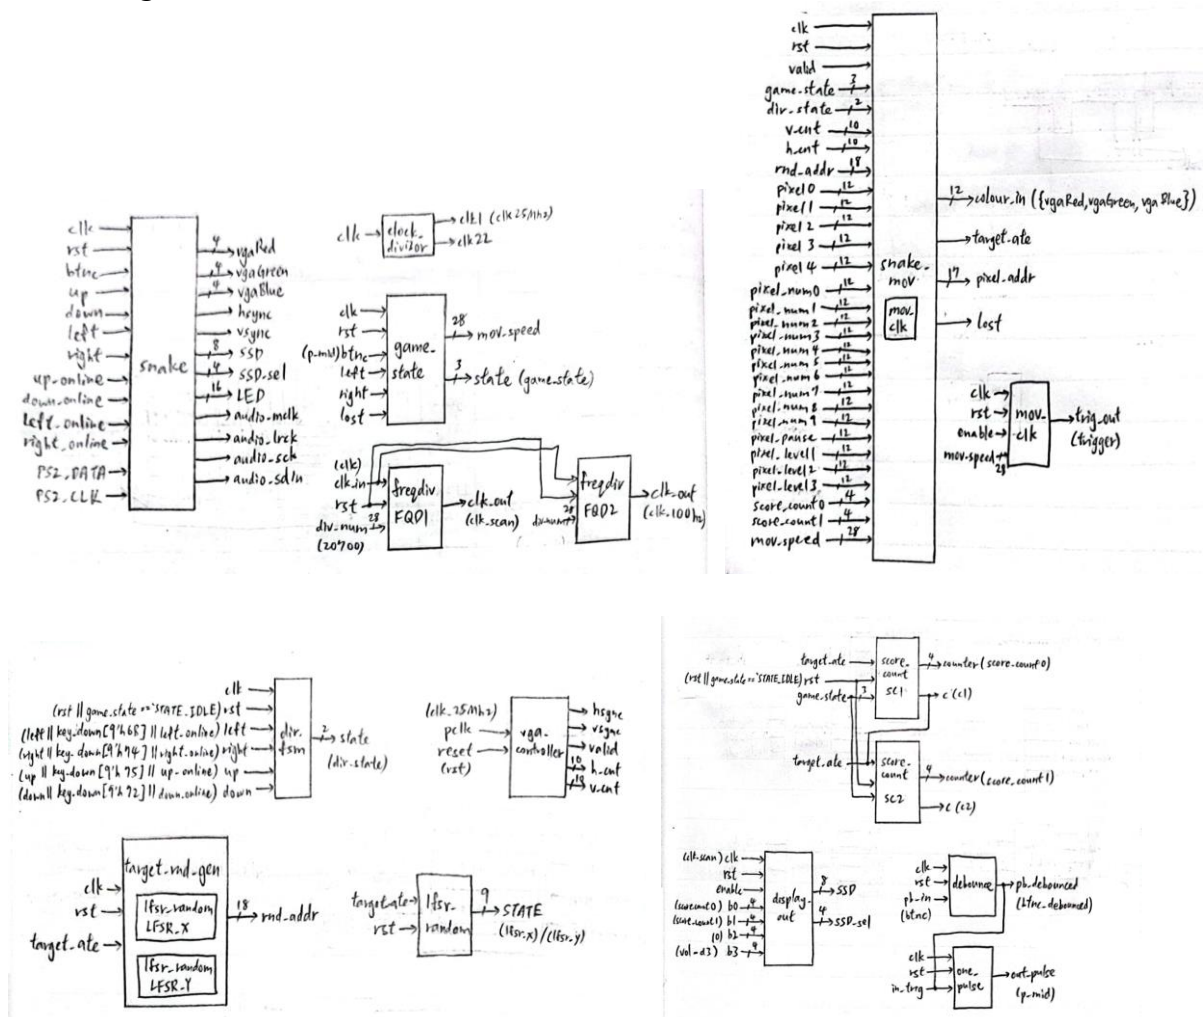 clk
rst
btnc
up
down
left
right
up_online
down_online
left_online
right_online
PS2_DATA
PS2_CLK
snake
4 vgaRed
4 vgaGreen
4 vgaBlue
hsync
vsync
8 SSD
4 SSD_sel
16 LED
audio_mclk
audio_lrck
audio_sck
audio_sdin
clk
clock_
divisor
clk1 (clk25Mhz)
clk22
clk
rst
(p_mid) btnc
left
right
lost
game_
state
28 mov_speed
3 state (game_state)
(clk)
clk_in
rst
div_num 28
(20'700)
freqdiv
FQD1
clk_out
(clk_scan)
28
div_num
freqdiv
FQD2
clk_out
(clk_100hz)
clk
rst
valid
game_state 3
dir_state 2
v_cnt 10
h_cnt 10
rnd_addr 18
pixel0 12
pixel1 12
pixel2 12
pixel3 12
pixel4 12
pixel_num0 12
pixel_num1 12
pixel_num2 12
pixel_num3 12
pixel_num4 12
pixel_num5 12
pixel_num6 12
pixel_num7 12
pixel_num8 12
pixel_num9 12
pixel_pause 12
pixel_level1 12
pixel_level2 12
pixel_level3 12
score_count0 4
score_count1 4
mov_speed 28
snake_
mov
mov_
clk
12 colour_in ({vgaRed,vgaGreen,vgaBlue})
target_ate
17 pixel_addr
lost
clk
rst
enable
mov_speed
28
mov_
clk
trig_out
(trigger)
clk
(rst || game_state == `STATE_IDLE) rst
(left || key_down[9'h6B] || left_online) left
(right || key_down[9'h74] || right_online) right
(up || key_down[9'h75] || up_online) up
(down || key_down[9'h72] || down_online) down
dir_
fsm
2 state
(dir_state)
(clk_25Mhz)
pclk
reset
(rst)
vga_
controller
hsync
vsync
valid
10 h_cnt
10 v_cnt
clk
rst
target_ate
target_rnd_gen
lfsr_random
LFSR_X
lfsr_random
LFSR_Y
18 rnd_addr
target_ate
rst
lfsr_
random
9 STATE
(lfsr_x)/(lfsr_y)
target_ate
(rst || game_state == `STATE_IDLE) rst
game_state 3
score_
count
SC1
4 counter (score_count0)
c (c1)
target_ate
score_
count
SC2
4 counter (score_count1)
c (c2)
(clk_scan) clk
rst
enable
(score_count0) b0 4
(score_count1) b1 4
(0) b2 4
(vol_d3) b3 4
display_
out
8 SSD
4 SSD_sel
clk
rst
pb_in
(btnc)
debounce
pb_debounced
(btnc_debounced)
clk
rst
in_trig
one_
pulse
out_pulse
(p_mid)